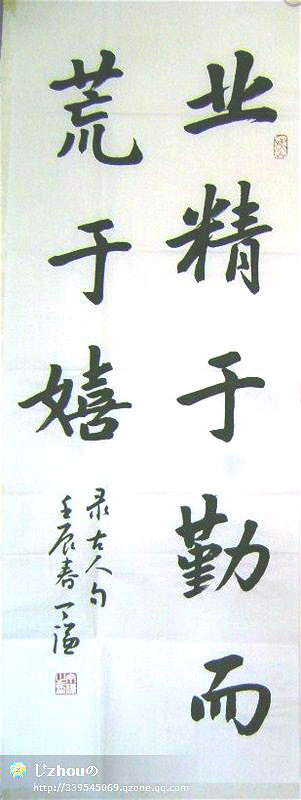 业精于勤而
荒于嬉
录古人句
壬辰春
じzhouの
http://339545069.qzone.qq.com